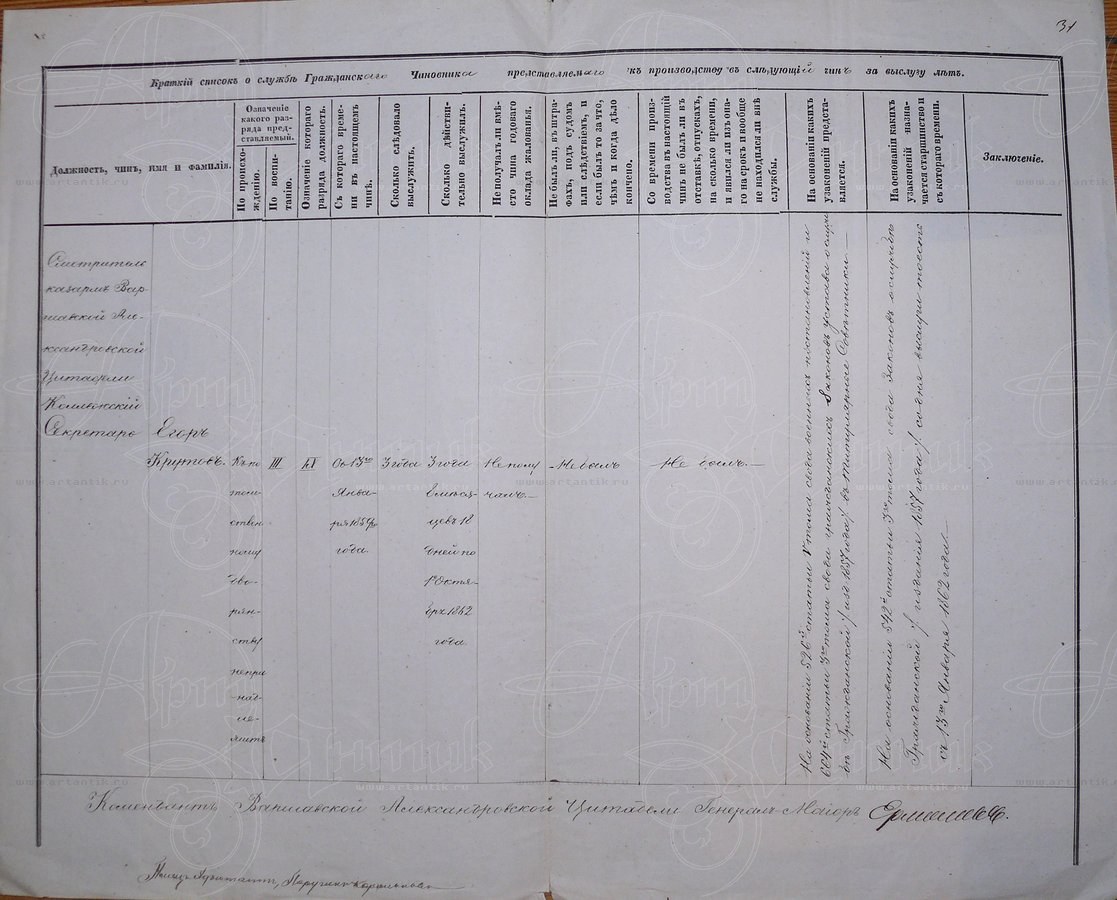 31
Краткій списокъ о службѣ Гражданскаго Чиновника представляемаго къ производству въ слѣдующій чинъ за выслугу лѣтъ.
Должность, чинъ, имя и фамилія.
Означеніе
какого раз-
ряда пред-
ставляемый.
По происхо-
жденію.
По воспи-
танію.
Означеніе котораго
разряда должность.
Съ котораго време-
ни въ настоящемъ
чинѣ.
Сколько слѣдовало
выслужить.
Сколько дѣйстви-
тельно выслужилъ.
Не получалъ ли вмѣ-
сто чина годоваго
оклада жалованья.
Не былъ ли, въ штра-
фахъ, подъ судомъ
или слѣдствіемъ, и
если былъ то за что,
чѣмъ и когда дѣло
кончено.
Со времени произ-
водства въ настоящій
чинъ не былъ ли въ
отставкѣ, отпускахъ,
на сколько времени,
и явился ли изъ она-
го на срокъ и вообще
не находился ли внѣ
службы.
На основаніи какихъ
узаконеній предста-
вляется.
На основаніи какихъ
узаконеній назна-
чается старшинство и
съ котораго времени.
Заключеніе.
Смотритель
казармъ Вар
шавской Але-
ксандровской
Цитадели
Коллежскій
Секретарь Егоръ
Крутовъ.
Къ по
томс-
ствен
ному
дво-
рян-
ству
непри
над-
ле-
житъ
III
XI
Съ 13го
Янва-
ря 1859
года
3 года
3 года
8 мѣся-
цевъ 18
дней по
1е Октя-
бря 1862
года
Не полу
чалъ.—
Не былъ
Не былъ.—
На основаніи 526й статьи V тома свода военныхъ постановленій и
664й статьи 3го тома свода гражданскихъ законовъ устава о служ
бѣ Гражданской /изд 1857 года/ въ титулярные Совѣтники.—
На основаніи 542й статьи 3го тома свода законовъ о службѣ
Гражданской / изданія 1857 года/ со дня выслуги тоесть
съ 13го Января 1862 года.—
Комендантъ Варшавской Александровской Цитадели Генералъ-Маіоръ
Плацъ-Адъютантъ, Поручикъ
www.artantik.ru
Арт Антик